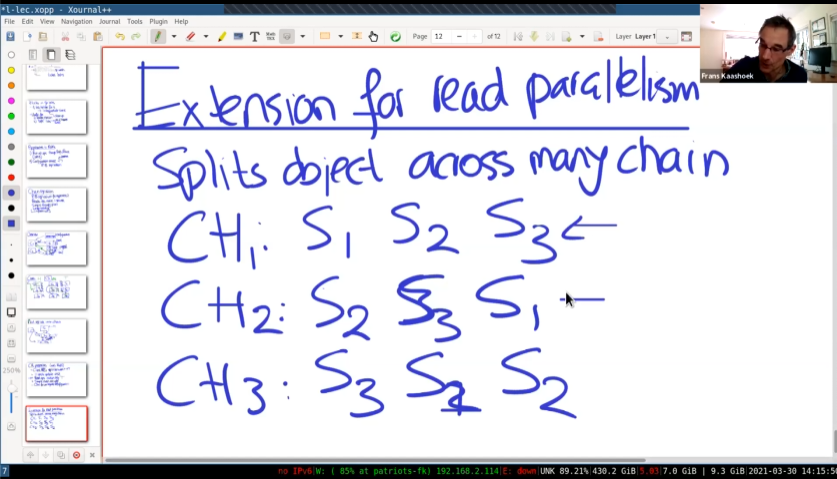 *l-lec.xopp - Xournal++
File Edit View Navigation Journal Tools Plugin Help
Page 12 of 12 Layer Layer 1
Frans Kaashoek
Extension for read parallelism
Splits object across many chain
CH1: S1 S2 S3 ←
CH2: S2 S3 S1 —
CH3: S3 S1 S2
250%
7 no IPv6|W: ( 85% at patriots-fk) 192.168.2.114|E: down|UNK 89.21%|430.2 GiB|5.03|7.0 GiB | 9.3 GiB|2021-03-30 14:15:50